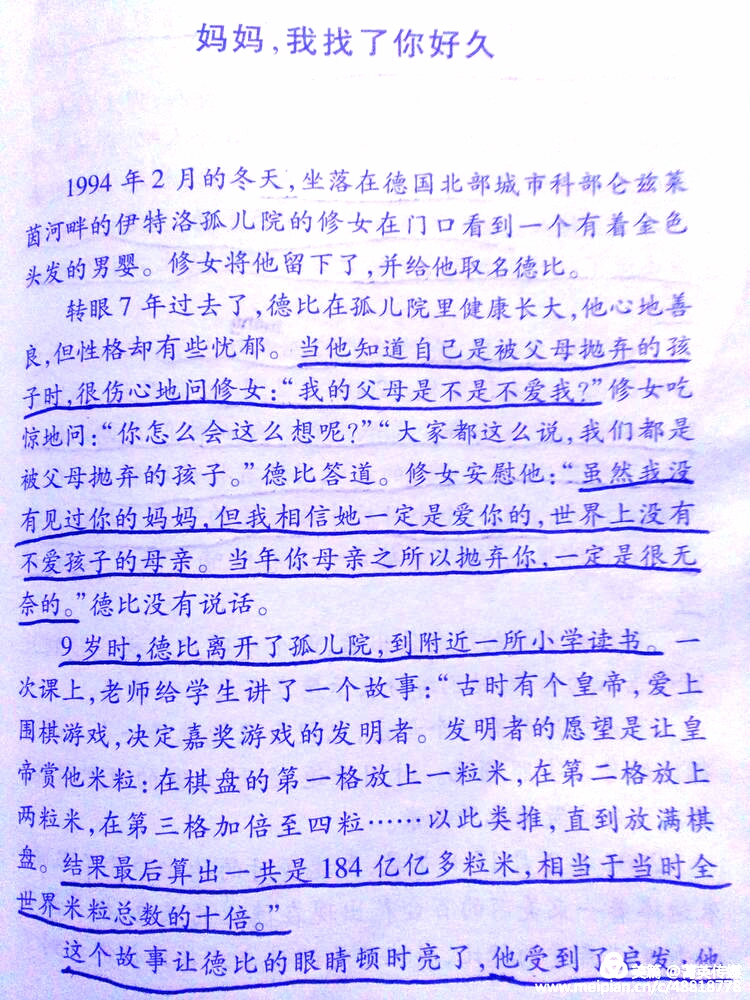 妈妈，我找了你好久
1994 年 2 月的冬天，坐落在德国北部城市科部仑兹莱
茵河畔的伊特洛孤儿院的修女在门口看到一个有着金色
头发的男婴。修女将他留下了，并给他取名德比。
转眼 7 年过去了，德比在孤儿院里健康长大，他心地善
良，但性格却有些忧郁。当他知道自己是被父母抛弃的孩
子时，很伤心地问修女：“我的父母是不是不爱我？”修女吃
惊地问：“你怎么会这么想呢？”“大家都这么说，我们都是
被父母抛弃的孩子。”德比答道。修女安慰他：“虽然我没
有见过你的妈妈，但我相信她一定是爱你的，世界上没有
不爱孩子的母亲。当年你母亲之所以抛弃你，一定是很无
奈的。”德比没有说话。
9 岁时，德比离开了孤儿院，到附近一所小学读书。一
次课上，老师给学生讲了一个故事：“古时有个皇帝，爱上
围棋游戏，决定嘉奖游戏的发明者。发明者的愿望是让皇
帝赏他米粒：在棋盘的第一格放上一粒米，在第二格放上
两粒米，在第三格加倍至四粒……以此类推，直到放满棋
盘。结果最后算出一共是 184 亿亿多粒米，相当于当时全
世界米粒总数的十倍。”
这个故事让德比的眼睛顿时亮了，他受到了启发：他
www.meipian.cn/c/48818778